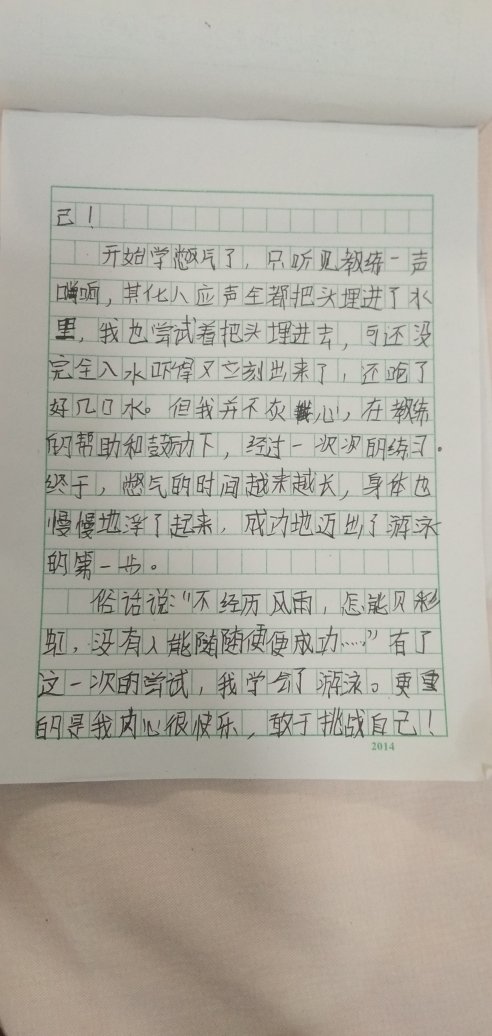 己！
开始学憋气了，只听见教练一声
哨响，其他人应声全都把头埋进了水
里，我也尝试着把头埋进去，可还没
完全入水吓得又立刻出来了，还呛了
好几口水。但我并不灰心，在教练
的帮助和鼓励下，经过一次次的练习。
终于，憋气的时间越来越长，身体也
慢慢地浮了起来，成功地迈出了游泳
的第一步。
俗话说：“不经历风雨，怎能见彩
虹，没有人能随随便便成功……”有了
这一次的尝试，我学会了游泳。更重
的是我内心很快乐，敢于挑战自己！
2014